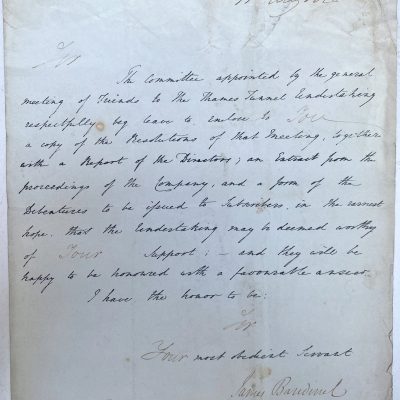 Sir
The Committee appointed by the general
meeting of Friends to the Thames Tunnel Undertaking
respectfully beg leave to enclose to You
a copy of the Resolutions of that Meeting, together
with a Report of the Directors; an Extract from the
proceedings of the Company, and a form of the
Debentures to be issued to Subscribers, in the earnest
hope, that the Undertaking may be deemed worthy
of Your Support; – and they will be
happy to be honoured with a favourable answer.
I have the honor to be:
Sir
Your most obedient Servant
James Bandinel